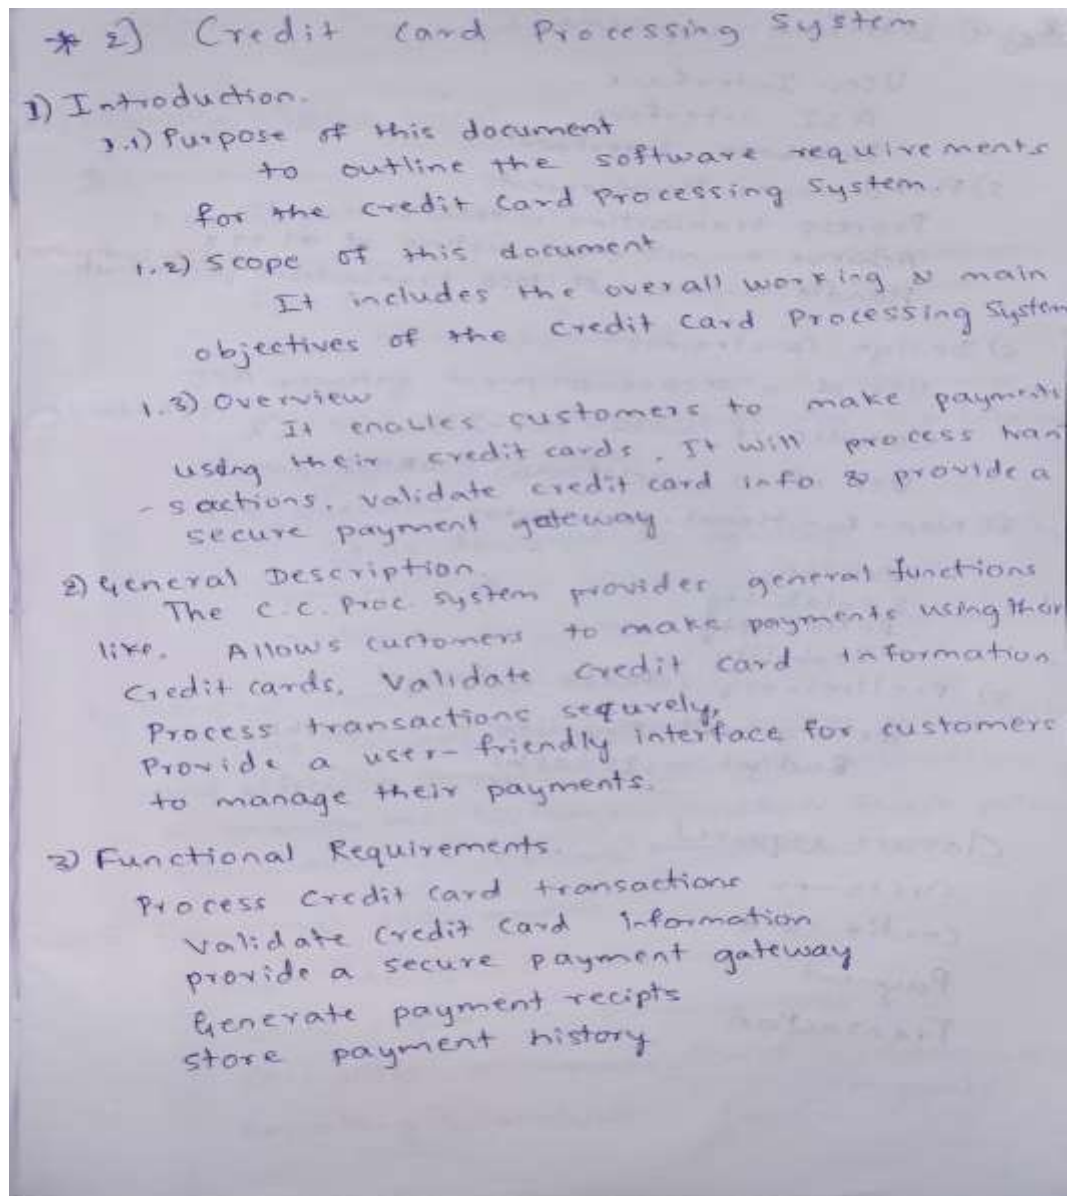 * 2) Credit Card Processing System
1) Introduction.
1.1) Purpose of this document
to outline the software requirements
for the credit Card Processing System.
1.2) Scope of this document
It includes the overall working & main
objectives of the credit Card Processing System
1.3) Overview
It enables customers to make payments
using their credit cards. It will process tran
- sactions, validate credit card info & provide a
secure payment gateway
2) General Description.
The C.C. Proc. System provides general functions
like. Allows customers to make payments using their
Credit cards, Validate credit card information
Process transactions sequrely,
Provide a user-friendly interface for customers
to manage their payments.
3) Functional Requirements.
Process Credit Card transactions
Validate Credit Card Information
provide a secure payment gateway
Generate payment recipts
store payment history